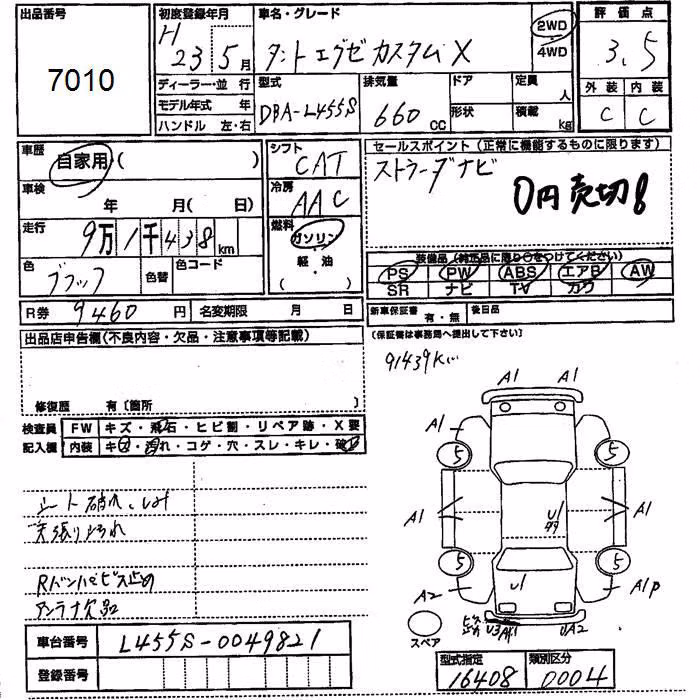 出品番号
7010
初度登録年月
H
23 5月
車名・グレード
タントエグゼカスタムX
2WD
4WD
評価点
3.5
外装 内装
C C
ディーラー・並行
モデル年式 年
ハンドル 左・右
型式
DBA-L455S
排気量
660 cc
ドア
形状
定員
人
積載
kg
車歴
自家用( )
車検
年 月( 日)
走行
9万1千438km
色
ブラック
色替
色コード
シフト
CAT
冷房
AAC
燃料
ガソリン
軽・油
( ・ )
セールスポイント(正常に機能するものに限ります)
ストラーダナビ
0円売切!
装備品(純正品に限り○をつけてください)
PS PW ABS エアB AW
SR ナビ TV カワ
R券 9460 円
名変期限 月 日
新車保証書
有・無
後日品
(保証書は事務局へ提出して下さい)
出品店申告欄(不良内容・欠品・注意事項等記載)
修復歴 有〔箇所
検査員
記入欄
FW キズ・飛石・ヒビ割・リペア跡・X要
内装 キズ・汚れ・コゲ・穴・スレ・キレ・破れ
シート破れ、しみ
天張り汚れ
Rバンパビス止め
アンテナ欠品
91439K
A1 A1
A1
5 5
A1 A1
U1
5 5
A2 A1P
U1
ビス
止め U3 A1 UA2
スペア
車台番号 L455S-0049821
登録番号
型式指定
16408
類別区分
0004